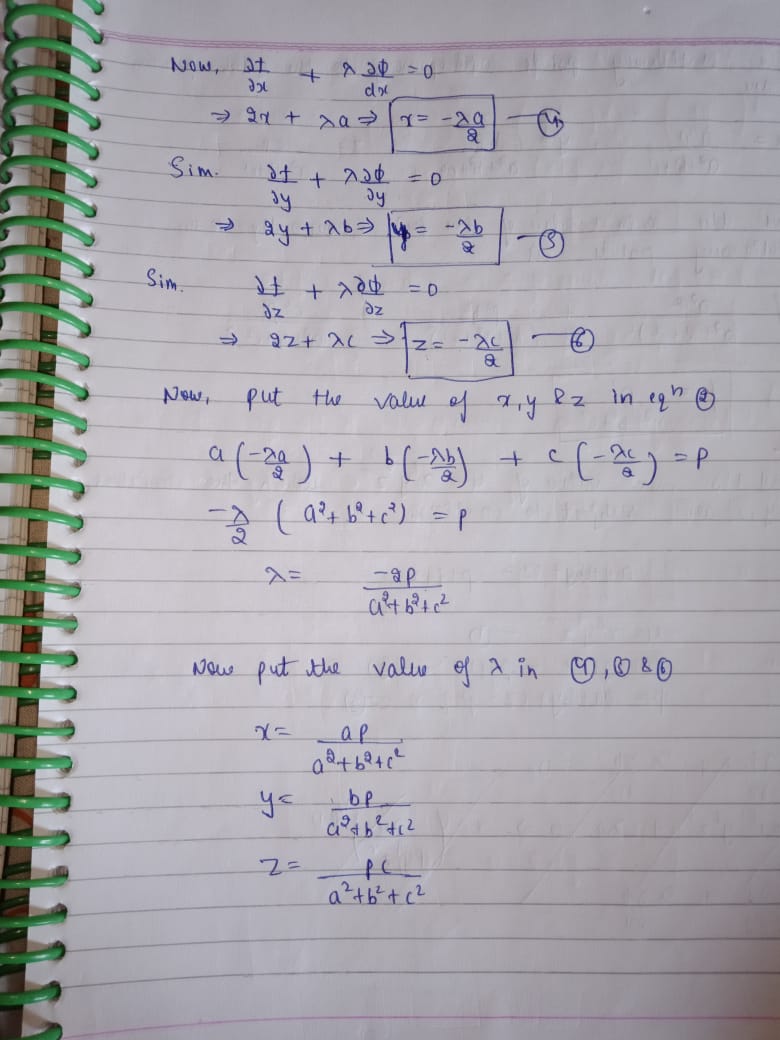 Now, ∂f/∂x + λ ∂φ/dx = 0
⇒ 2x + λa ⇒ x = -λa/2 — ④
Sim. ∂f/∂y + λ ∂φ/∂y = 0
⇒ 2y + λb ⇒ y = -λb/2 — ⑤
Sim. ∂f/∂z + λ ∂φ/∂z = 0
⇒ 2z + λc ⇒ z = -λc/2 — ⑥
Now, put the value of x, y & z in eqⁿ ②
a(-λa/2) + b(-λb/2) + c(-λc/2) = p
-λ/2 (a² + b² + c²) = p
λ = -2p/a²+b²+c²
Now put the value of λ in ④, ⑤ & ⑥
x = ap/a²+b²+c²
y = bp/a²+b²+c²
z = pc/a²+b²+c²